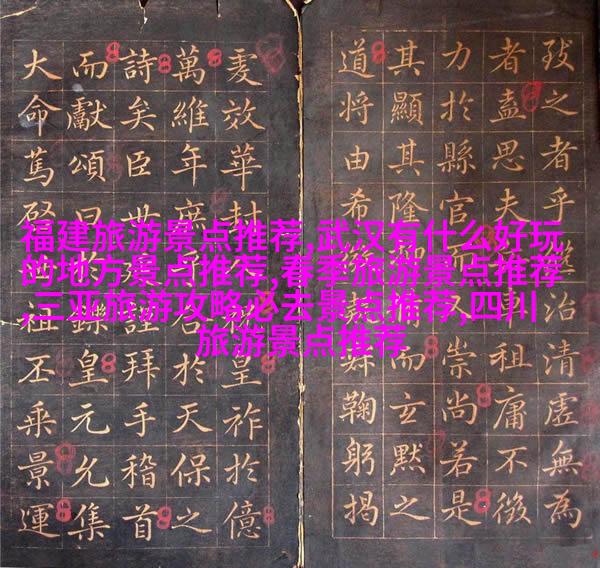 福建旅游景点推荐,武汉有什么好玩
的地方景点推荐,春季旅游景点推荐
,三亚旅游攻略必去景点推荐,四川
旅游景点推荐
之者乎治清虛無為
者盍思夫租庸不徵
力於縣官而又崇尚若是
其顯其隆而玄默之
道將由希鞠躬揭
效華封皇祚於億
萬維年庶名於天保之
詩矣臣世謹拜手稽首
而獻頌曰於鑠皇元允集
大命篤啓祖丕乘景運